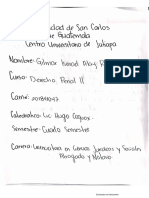 idad de San Carlos
de Guatemala
Centro Universitario de Jutiapa
Nombre: Gilmar
Curso: Derecho Penal II
Carné:
Catedratico: Lic Hugo
Semestre: Cuarto Semestre
Carrera: Licenciatura en Ciencias Juridicas y Sociales
Abogado y Notario